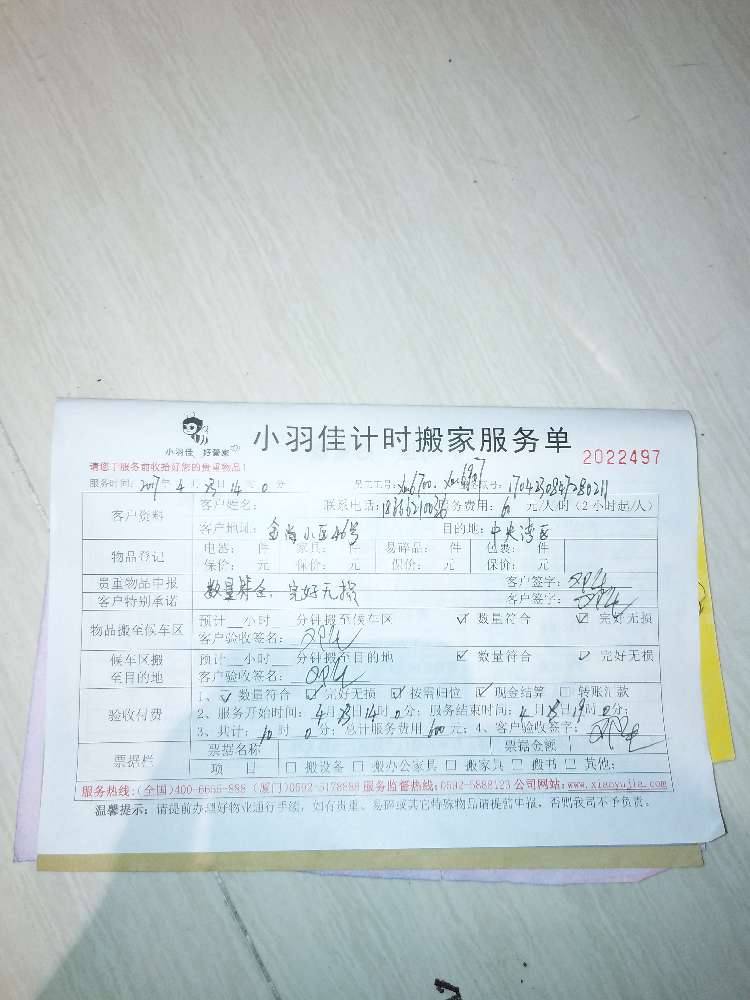 小羽佳计时搬家服务单
小羽佳 好管家
2022497
请您于服务前收拾好您的贵重物品!
服务时间: 2017年 4月 23日 14时 0分 员工工号:
客户资料 客户姓名: 联系电话: 服务费用: 60 元/人/时(2小时起/人)
客户地址: 金尚小区46号 目的地: 中央湾区
物品登记 电器: 件 家具: 件 易碎品: 件 包裹: 件
保价: 元 保价: 元 保价: 元 保价: 元
贵重物品申报 客户签字:
数量符合, 完好无损
客户特别承诺 客户签字:
物品搬至候车区 预计__小时__分钟搬至候车区 ☑ 数量符合 ☑ 完好无损
客户验收签名:
候车区搬至目的地 预计__小时__分钟搬至目的地 ☑ 数量符合 ☑ 完好无损
客户验收签名:
验收付费 1、☑ 数量符合 ☑ 完好无损 ☑ 按需归位 ☑ 现金结算 □ 转账汇款
2、服务开始时间: 4月23日14时0分; 服务结束时间: 4月23日19时0分;
3、共计: 10时 0分; 总计服务费用 600元; 4、客户验收签字:
票据栏 票据名称 票据金额
项 目 □ 搬设备 □ 搬办公家具 □ 搬家具 □ 搬书 □ 其他:
服务热线:(全国)400-6655-888 (厦门)0592-5178888 服务监督热线:0592-5888123 公司网站:www.xiaoyujia.com
温馨提示: 请提前办理好物业通行手续, 如有贵重、易碎或其它特殊物品请提前申报, 否则我司不予负责。